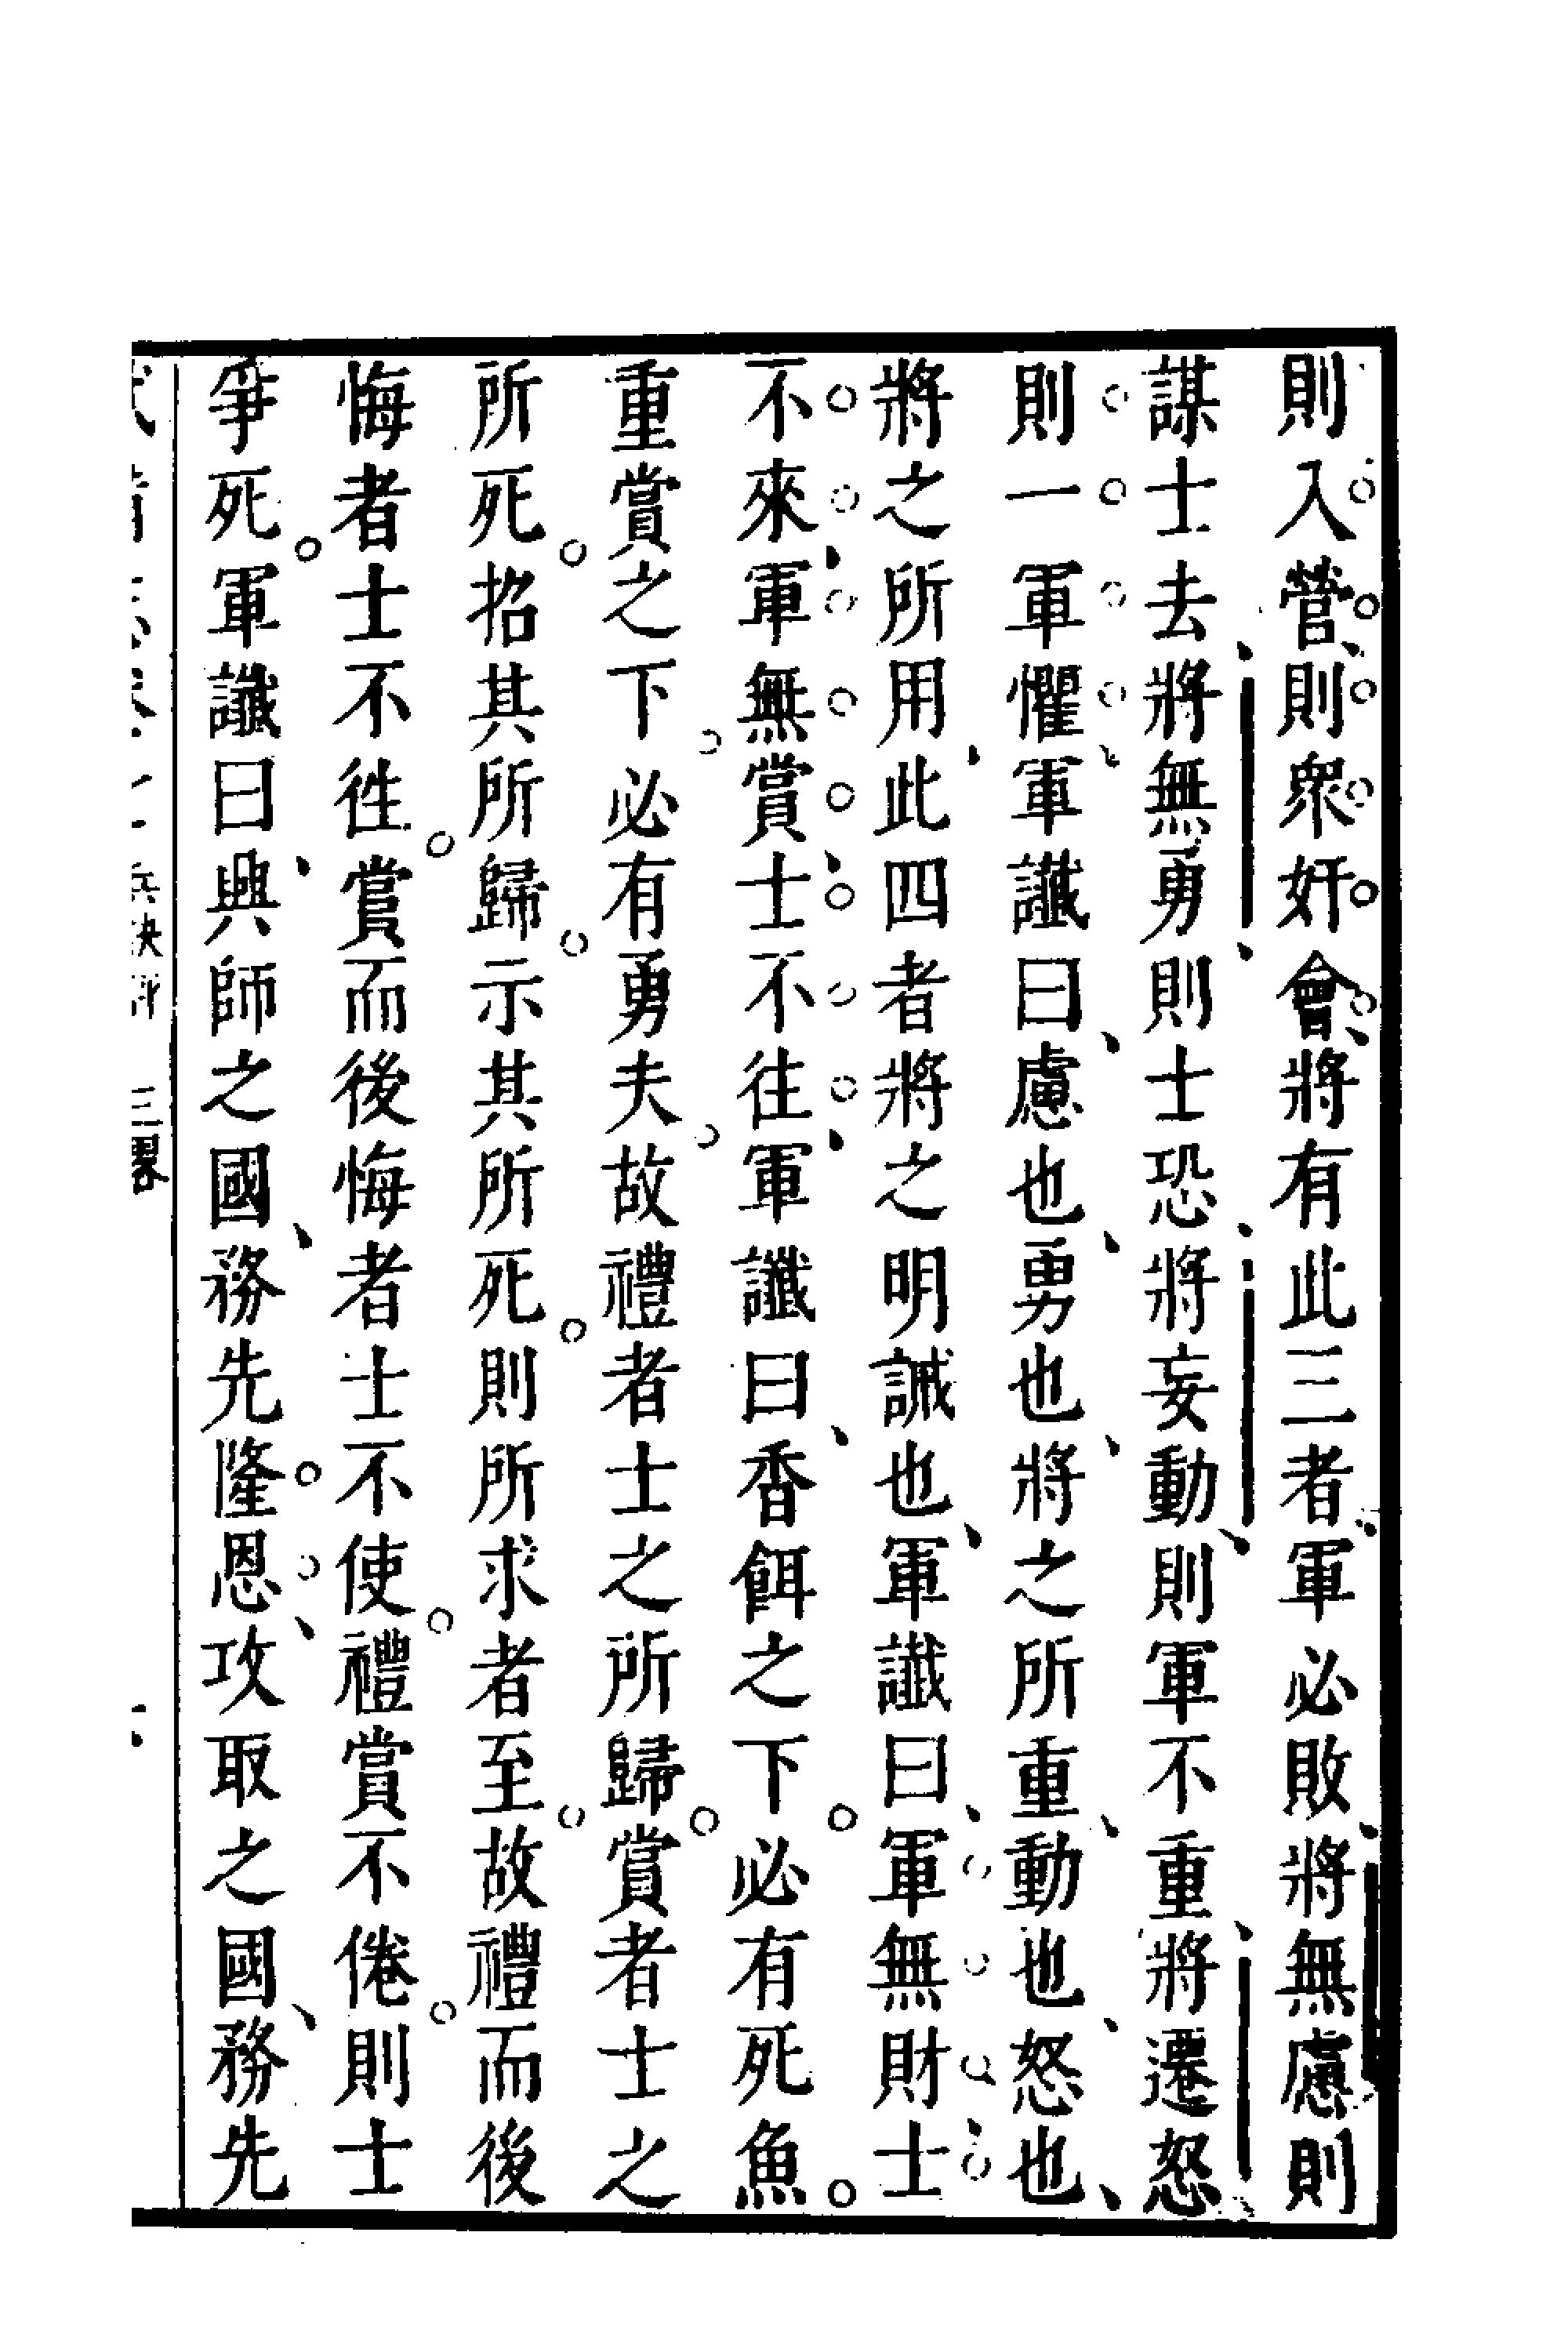 則入營則衆奸會將有此三者軍必敗將無慮則
謀士去將無勇則士恐將妄動則軍不重將遷怒
則一軍懼軍讖曰慮也勇也將之所重動也怒也
將之所用此四者將之明誡也軍讖曰軍無財士
不來軍無賞士不往軍讖曰香餌之下必有死魚
重賞之下必有勇夫故禮者士之所歸賞者士之
所死招其所歸示其所死則所求者至故禮而後
悔者士不徃賞而後悔者士不使禮賞不倦則士
爭死軍讖曰興師之國務先隆恩攻取之國務先
三畧